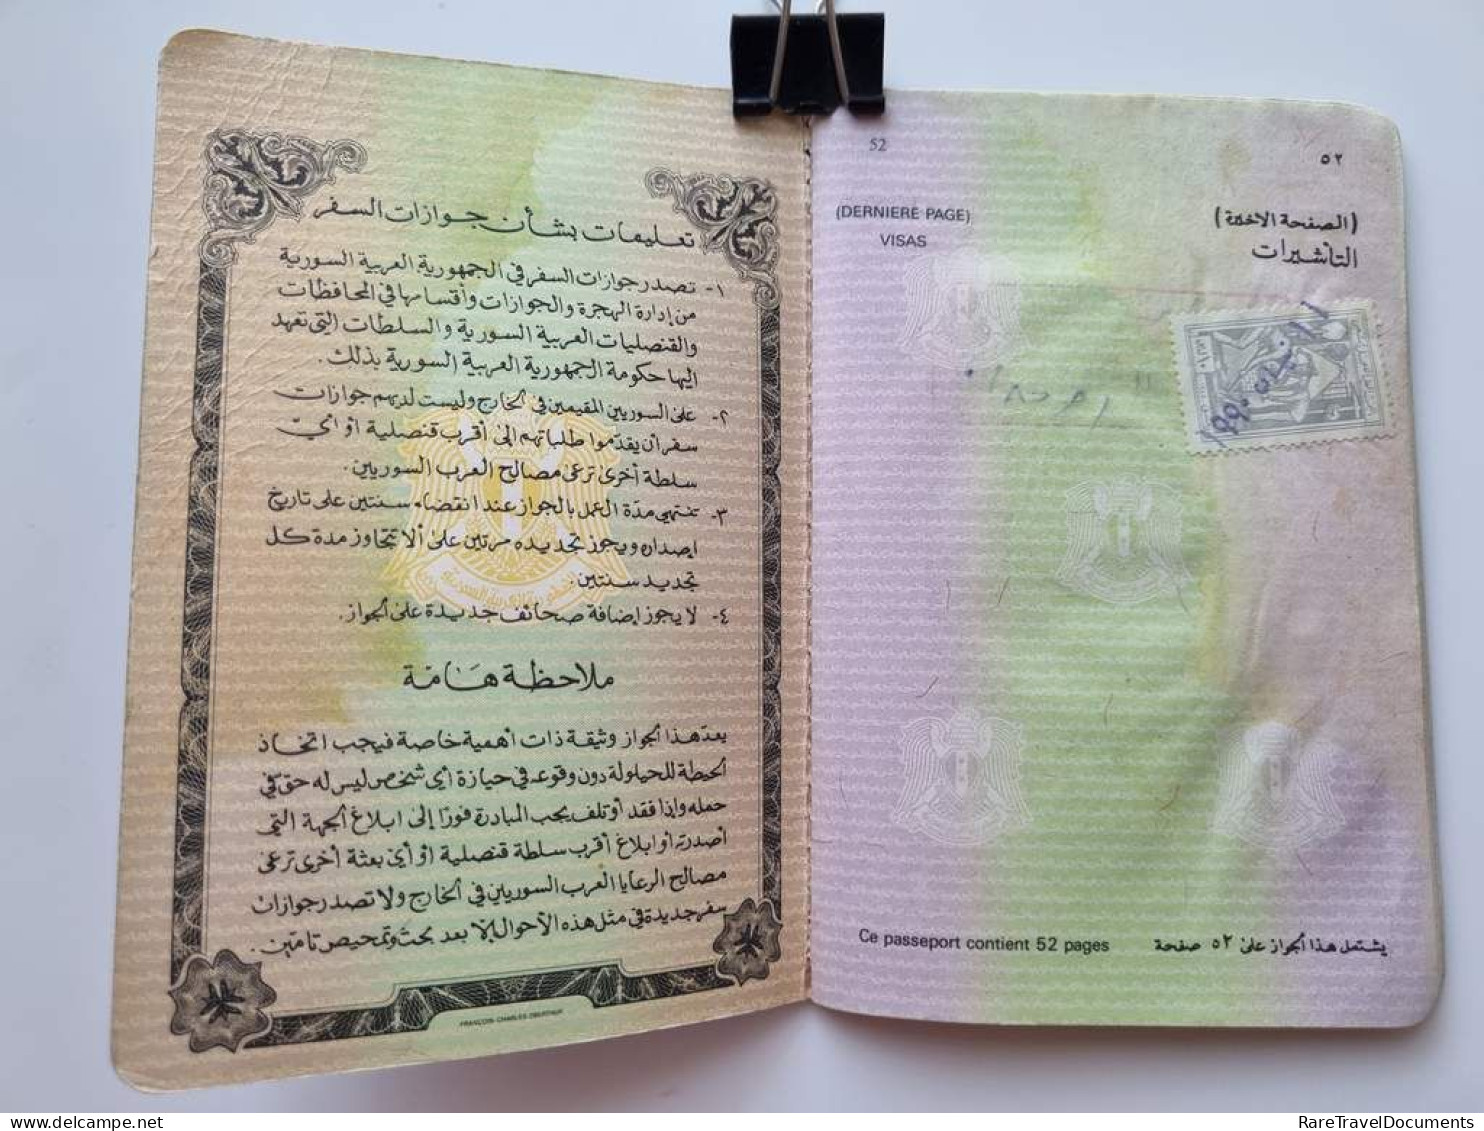 تعليمات بشأن جوازات السفر
١- تصدر جوازات السفر في الجمهورية العربية السورية
من إدارة الهجرة والجوازات وأقسامها في المحافظات
والقنصليات العربية السورية والسلطات التي تعهد
إليها حكومة الجمهورية العربية السورية بذلك.
٢- على السوريين المقيمين في الخارج وليست لديهم جوازات
سفر أن يقدموا طلباتهم إلى أقرب قنصلية أو أي
سلطة أخرى ترعى مصالح العرب السوريين.
٣- تنتهي مدة العمل بالجواز عند انقضاء سنتين على تاريخ
إصداره ويجوز تجديده مرتين على ألا تتجاوز مدة كل
تجديد سنتين.
٤- لا يجوز إضافة صحائف جديدة على الجواز.
ملاحظة هَامّة
يعدّ هذا الجواز وثيقة ذات أهمية خاصة فيجب اتخاذ
الحيطة للحيلولة دون وقوعه في حيازة أي شخص ليس له حق في
حمله وإذا فقد أو تلف يجب المبادرة فورًا إلى ابلاغ الجهة التي
أصدرته أو ابلاغ أقرب سلطة قنصلية أو أي بعثة أخرى ترعى
مصالح الرعايا العرب السوريين في الخارج ولا تصدر جوازات
سفر جديدة في مثل هذه الأحوال إلا بعد بحث وتمحيص تامّين.
FRANÇOIS-CHARLES OBERTHUR
52 ٥٢
(DERNIERE PAGE) (الصفحة الاخيرة)
VISAS التأشيرات
Ce passeport contient 52 pages يشتمل هذا الجواز على ٥٢ صفحة
delcampe.net
RareTravelDocuments